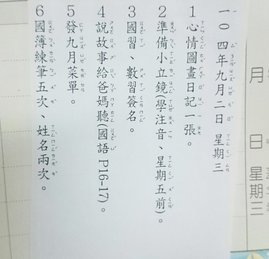 一０四年九月二日 星期三
1心情圖畫日記一張。
2準備小立鏡(學注音、星期五前)。
3國習、數習簽名。
4說故事給爸媽聽(國語P16-17)。
5發九月菜單。
6國簿練筆五次、姓名兩次。
月
日